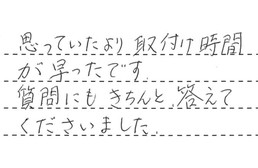 思っていたより取付け時間
が早ったです.
質問にもきちんと、答えて
くださいました.